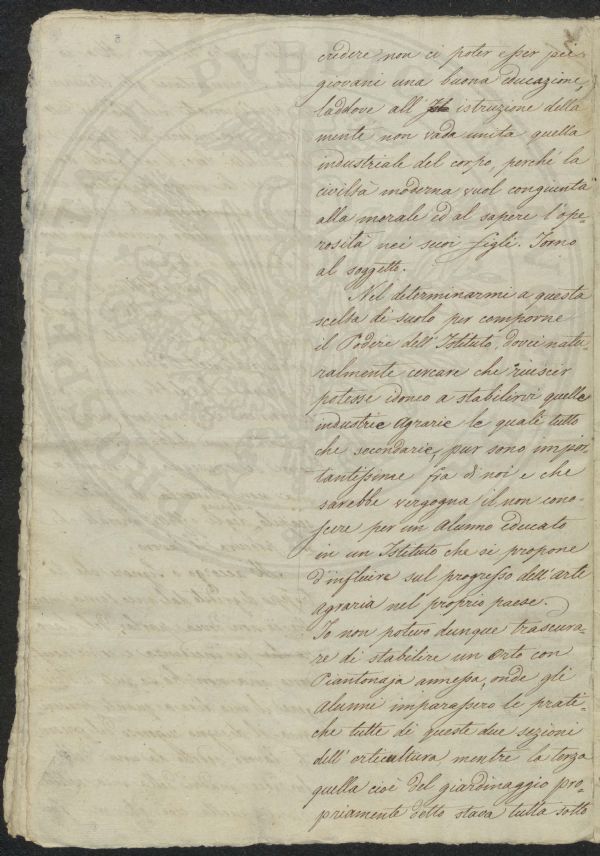 credere non ci poter esser pei
giovani una buona educazione,
laddove all' istruzione della
mente non vada unita quella
industriale del corpo, perché la
civiltà moderna vuol congiunta
alla morale ed al sapere l'ope-
rosità nei suoi figli. Torno
al soggetto.
Nel determinarmi a questa
scelta di suolo per comporne
il Podere dell'Istituto, dovei natu-
ralmente cercare che riuscir
potesse idoneo a stabilirvi quelle
industrie agrarie le quali tutto
che secondarie, pur sono impor
tantissime fra di noi e che
sarebbe vergogna il non cono-
scere per un Alunno educato
in un Istituto che si propone
d'influire sul progresso dell'arte
agraria nel proprio paese.
Io non potevo dunque trascura-
re di stabilire un Orto con
Piantonaja annessa, onde gli
Alunni imparassero le prati-
che tutte di queste due sezioni
dell'orticultura, mentre la terza
quella cioè del giardinaggio pro-
priamente detto stava tutta sotto